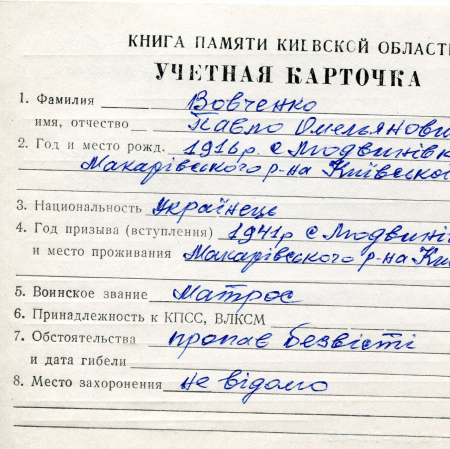 КНИГА ПАМЯТИ КИЕВСКОЙ ОБЛАСТ
УЧЕТНАЯ КАРТОЧКА
1. Фамилия Вовченко
имя, отчество Павло Омелянови
2. Год и место рожд. 1916р с Людвинівк
Макарівського р-на Київсько
3. Национальность Українець
4. Год призыва (вступления) 1941р с Людвині
и место проживания Макарівського р-на Ки
5. Воинское звание матрос
6. Принадлежность к КПСС, ВЛКСМ
7. Обстоятельства пропав безвісті
и дата гибели
8. Место захоронения не відомо